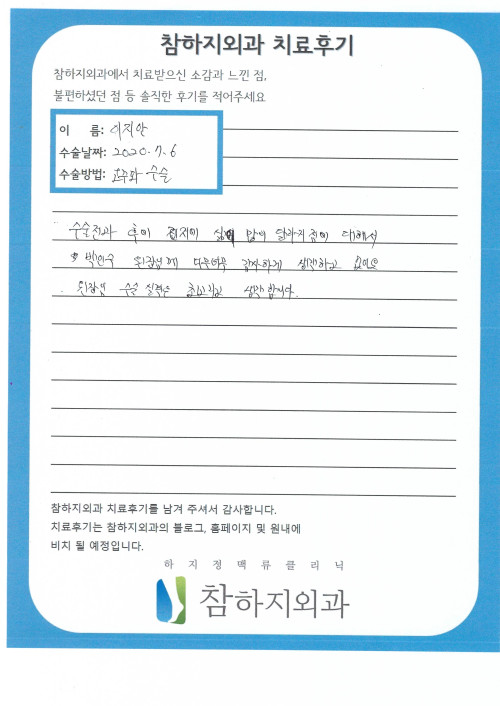 참하지외과 치료후기
참하지외과에서 치료받으신 소감과 느낀 점,
불편하셨던 점 등 솔직한 후기를 적어주세요
이 름: 이지안
수술날짜: 2020.7.6
수술방법: 수술
수술전과 후이 많이 달라지 점이 대해서
박인수 원장님에 다른아주 감사하게 생각하고 있으며
원장님 수술 실력은 최고라고 생각합니다.
참하지외과 치료후기를 남겨 주셔서 감사합니다.
치료후기는 참하지외과의 블로그, 홈페이지 및 원내에
비치 될 예정입니다.
하지정맥류클리닉
참하지외과